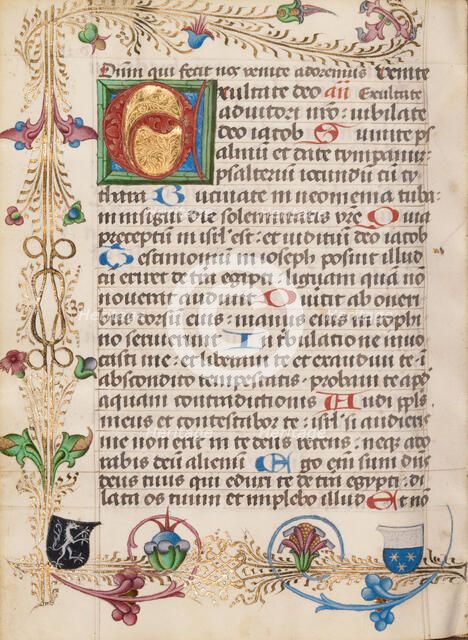 Dnm qui fecit nos venite adoremus Venite
Exultate deo aii Exultate
adiutori nro: iubilate
deo iacob Sumite ps
almum et date tympanum:
psalterium iocundum cu cy
thara Bucinate in neomenia tuba:
in insigni die solemnitatis vre Quia
preceptu in isrl est: et iuditiu deo iacob
Testimonium in ioseph posuit illud
cu exiret de tra egypti: liguam qua no
noverat audiuit Diuertit ab oneri
bus dorsu eius: manus eius in cophi
no seruierunt In tribulatione inuo
casti me: et liberaui te et exaudiui te: i
abscondito tempestatis: probaui te apd
aquam contradictionis Audi ppls
meus et contestabor te: isrl si audieris
me non erit in te deus recens: neqz ado
rabis deu alienu Ego enim sum dns
deus tuus qui eduxi te de tra egypti: di
lata os tuum et implebo illud Et no